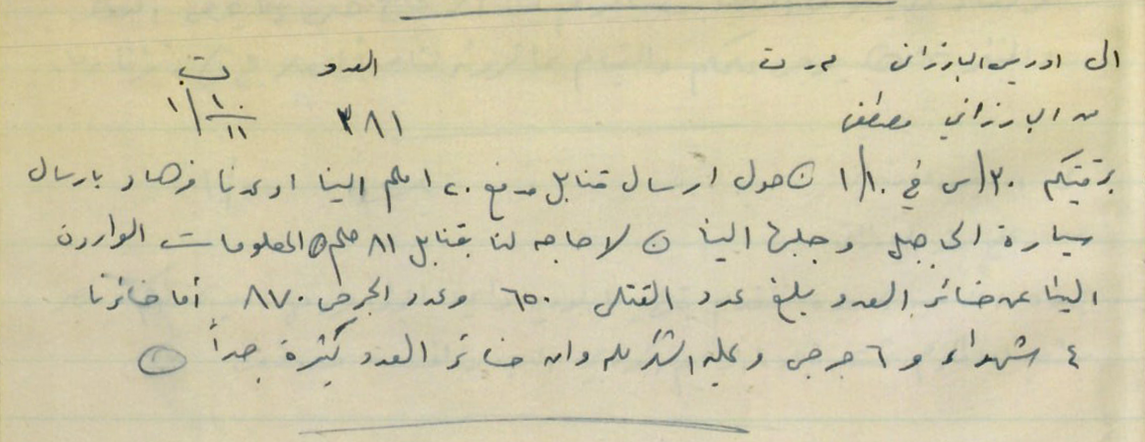 الى ادريس البارزاني العدد ت
من البارزاني مصطفى ٣٨١ ١٠/١١ ١
برقيتكم ٣٠/س في ١/١٠ ن حول ارسال قنابل مدفع ١٢٠ ملم الينا اوعدنا فرهاد بارسال
سيارة الى جبل وجلبها الينا ن لا حاجه لنا بقنابل ٨١ ملم ن المعلومات الواردة
الينا عن خسائر العدو بلغ عدد القتلى ٦٥٠ وعدد الجرحى ٨٧٠ أما خسائرنا
٤ شهداء و ٦ جرحى وان خسائر العدو كثيرة جداً ن